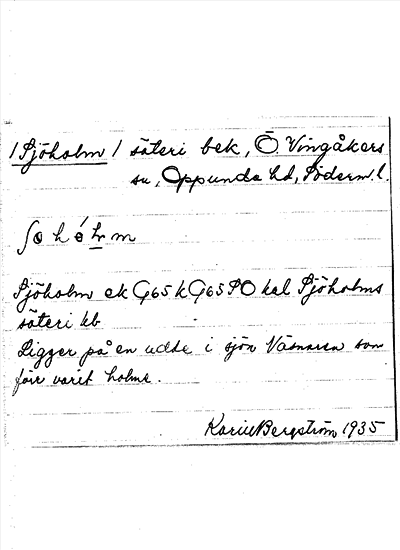 /Sjöholm/ säteri bek, Ö Vingåkers
sn, Oppunda hd, Söderm. l.
Sjöholm ek G65 k G65 SO kal Sjöholms
säteri kb
Ligger på en udde i sjön Viren som
förr varit holme.
Karin Bergström 1935